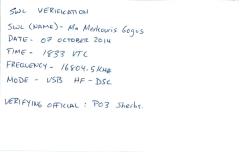 SWL VERIFICATION
SWL (NAME) - Mr Merkouris Gogos
DATE - 07 OCTOBER 2014
TIME - 1833 UTC
FREQUENCY - 16804.5 KHz
MODE - USB HF-DSC
VERIFYING OFFICIAL : PO3 Sherby.